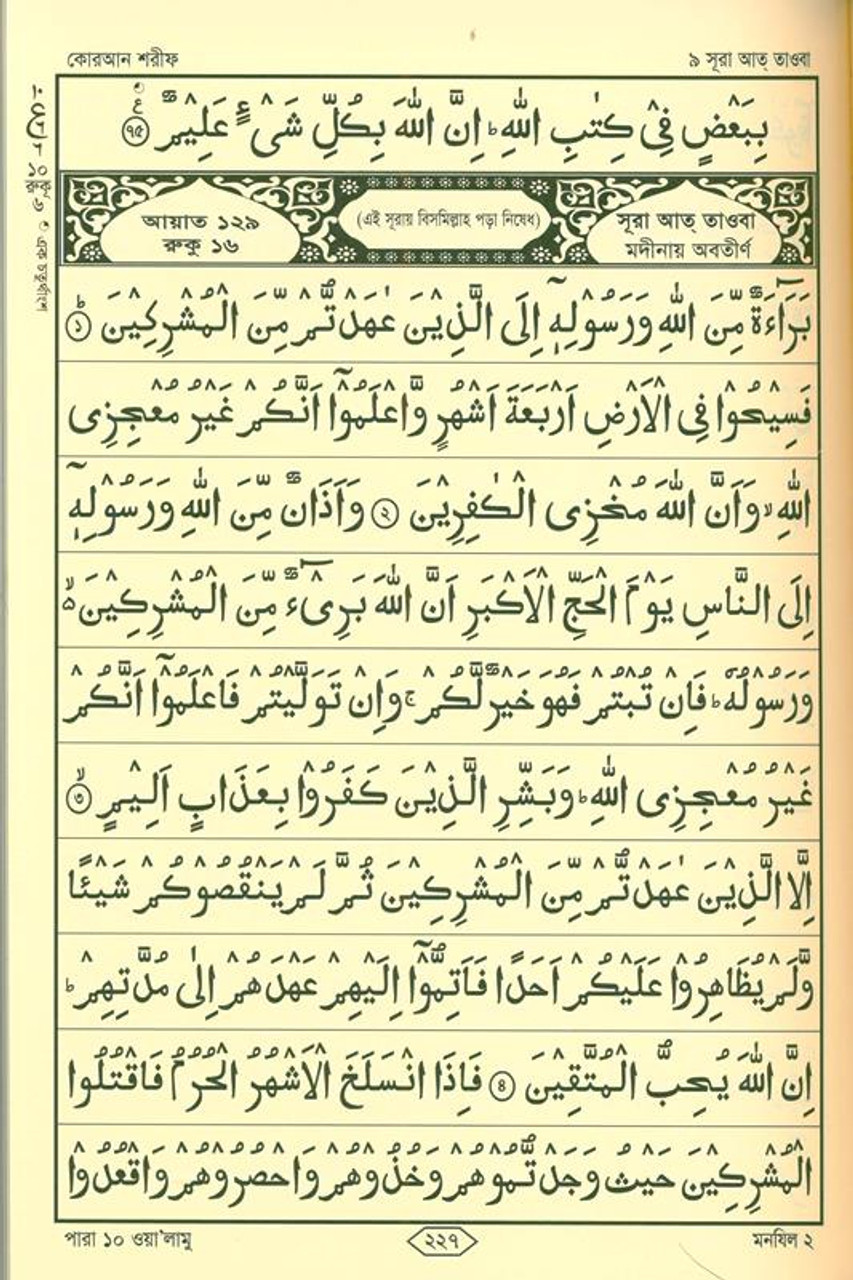 কোরআন শরীফ ৯ সূরা আত্ তাওবা
بِبَعْضٍ فِيْ كِتٰبِ اللّٰهِ ؕ اِنَّ اللّٰهَ بِكُلِّ شَيْءٍ عَلِيْمٌ ۧ ৭৫
আয়াত ১২৯ (এই সূরায় বিসমিল্লাহ পড়া নিষেধ) সূরা আত্ তাওবা
রুকু ১৬ মদীনায় অবতীর্ণ
بَرَآءَةٌ مِّنَ اللّٰهِ وَرَسُوْلِهٖۤ اِلَى الَّذِيْنَ عٰهَدْتُّمْ مِّنَ الْمُشْرِكِيْنَ ؕ ১
فَسِيْحُوْا فِى الْاَرْضِ اَرْبَعَةَ اَشْهُرٍ وَّاعْلَمُوْۤا اَنَّكُمْ غَيْرُ مُعْجِزِى
اللّٰهِ ۙ وَاَنَّ اللّٰهَ مُخْزِى الْكٰفِرِيْنَ ২ وَاَذَانٌ مِّنَ اللّٰهِ وَرَسُوْلِهٖۤ
اِلَى النَّاسِ يَوْمَ الْحَجِّ الْاَكْبَرِ اَنَّ اللّٰهَ بَرِىْٓءٌ مِّنَ الْمُشْرِكِيْنَ ۙ
وَرَسُوْلُهٗ ؕ فَاِنْ تُبْتُمْ فَهُوَ خَيْرٌ لَّكُمْ ۚ وَاِنْ تَوَلَّيْتُمْ فَاعْلَمُوْۤا اَنَّكُمْ
غَيْرُ مُعْجِزِى اللّٰهِ ؕ وَبَشِّرِ الَّذِيْنَ كَفَرُوْا بِعَذَابٍ اَلِيْمٍ ۙ ৩
اِلَّا الَّذِيْنَ عٰهَدْتُّمْ مِّنَ الْمُشْرِكِيْنَ ثُمَّ لَمْ يَنْقُصُوْكُمْ شَيْئًا
وَّلَمْ يُظَاهِرُوْا عَلَيْكُمْ اَحَدًا فَاَتِمُّوْۤا اِلَيْهِمْ عَهْدَهُمْ اِلٰى مُدَّتِهِمْ ؕ
اِنَّ اللّٰهَ يُحِبُّ الْمُتَّقِيْنَ ৪ فَاِذَا انْسَلَخَ الْاَشْهُرُ الْحُرُمُ فَاقْتُلُوا
الْمُشْرِكِيْنَ حَيْثُ وَجَدْتُّمُوْهُمْ وَخُذُوْهُمْ وَاحْصُرُوْهُمْ وَاقْعُدُوْا
পারা ১০ ওয়া'লামু ২২৭ মনযিল ২